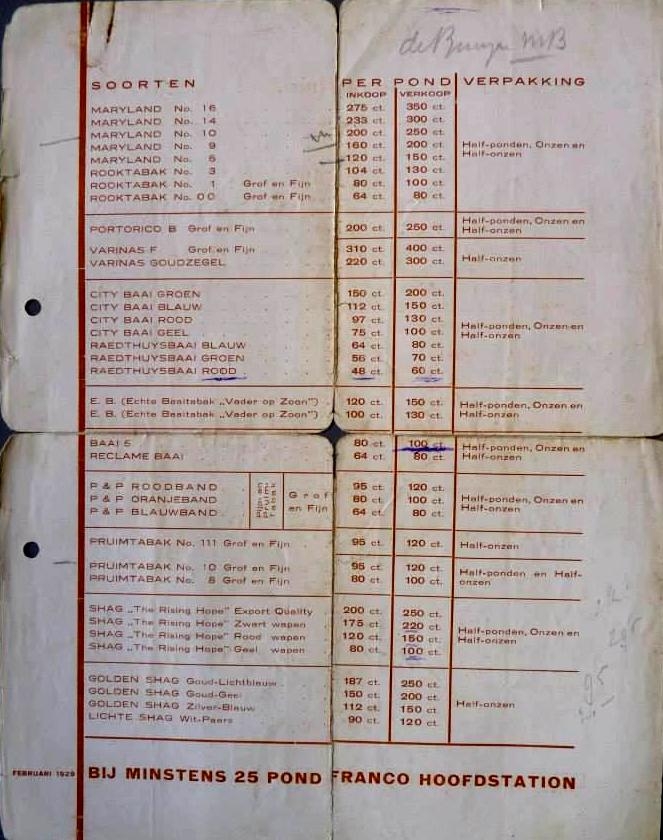 de Bruyn MB
SOORTEN PER POND VERPAKKING
INKOOP VERKOOP
MARYLAND No. 16 275 ct. 350 ct.
MARYLAND No. 14 233 ct. 300 ct.
MARYLAND No. 10 200 ct. 250 ct.
MARYLAND No. 9 160 ct. 200 ct. Half-ponden, Onzen en
MARYLAND No. 5 120 ct. 150 ct. Half-onzen
ROOKTABAK No. 3 104 ct. 130 ct.
ROOKTABAK No. 1 Grof en Fijn 80 ct. 100 ct.
ROOKTABAK No. 00 Grof en Fijn 64 ct. 80 ct.
PORTORICO B Grof en Fijn 200 ct. 250 ct. Half-ponden, Onzen en
Half-onzen
VARINAS F Grof en Fijn 310 ct. 400 ct. Half-onzen
VARINAS GOUDZEGEL 220 ct. 300 ct.
CITY BAAI GROEN 150 ct. 200 ct.
CITY BAAI BLAUW 112 ct. 150 ct.
CITY BAAI ROOD 97 ct. 130 ct. Half-ponden, Onzen en
CITY BAAI GEEL 75 ct. 100 ct. Half-onzen
RAEDTHUYSBAAI BLAUW 64 ct. 80 ct.
RAEDTHUYSBAAI GROEN 56 ct. 70 ct.
RAEDTHUYSBAAI ROOD 48 ct. 60 ct.
E. B. (Echte Baaitabak „Vader op Zoon”) 120 ct. 150 ct. Half-ponden, Onzen en
E. B. (Echte Baaitabak „Vader op Zoon”) 100 ct. 130 ct. Half-onzen
BAAI 5 80 ct. 100 ct. Half-ponden, Onzen en
RECLAME BAAI 64 ct. 80 ct. Half-onzen
P & P ROODBAND Pijp- en Pruim-tabak Grof 95 ct. 120 ct.
P & P ORANJEBAND en Fijn 80 ct. 100 ct. Half-ponden, Onzen en
P & P BLAUWBAND 64 ct. 80 ct. Half-onzen
PRUIMTABAK No. 111 Grof en Fijn 95 ct. 120 ct. Half-onzen
PRUIMTABAK No. 10 Grof en Fijn 95 ct. 120 ct. Half-ponden en Half-
PRUIMTABAK No. 8 Grof en Fijn 80 ct. 100 ct. onzen
SHAG „The Rising Hope” Export Quality 200 ct. 250 ct.
SHAG „The Rising Hope” Zwart wapen 175 ct. 220 ct. Half-ponden, Onzen en
SHAG „The Rising Hope” Rood wapen 120 ct. 150 ct. Half-onzen
SHAG „The Rising Hope” Geel wapen 80 ct. 100 ct.
GOLDEN SHAG Goud-Lichtblauw 187 ct. 250 ct.
GOLDEN SHAG Goud-Geel 150 ct. 200 ct. Half-onzen
GOLDEN SHAG Zilver-Blauw 112 ct. 150 ct.
LICHTE SHAG Wit-Paars 90 ct. 120 ct.
FEBRUARI 1929 BIJ MINSTENS 25 POND FRANCO HOOFDSTATION